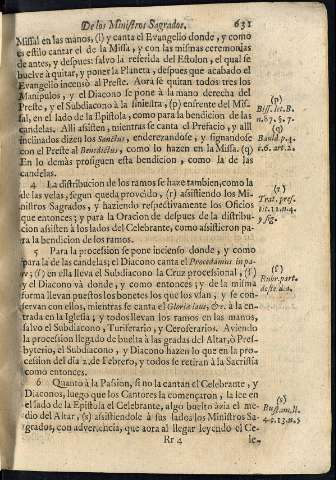 De los Ministros Sagrados. 631
Missal en las manos, (l) y canta el Evangelio donde, y como
es estilo cantar el de la Missa, y con las mismas ceremonias
de antes, y despues: salvo la referida del Estolon, el qual se
buelve à quitar, y poner la Planeta, despues que acabado el
Evangelio incensò al Preste. Aora se quitan todos tres los
Manipulos, y el Diacono se pone à la mano derecha del
Preste, y el Subdiacono à la siniestra, (p) enfrente del Mis-
sal, en el lado de la Epistola, como para la bendicion de las
candelas. Alli assisten, mientras se canta el Prefacio, y alli
inclinados dizen los Sanctus, enderezandose, y signandose
con el Preste al Benedictus, como lo hazen en la Missa. (q)
En lo demàs prosiguen esta bendicion, como la de las
candelas.
(p)
Biss. lit. B.
n. 67. §. 7.
(q)
Bauld. p. 4.
t. 6. art. 2.
4 La distribucion de los ramos se haze tambien, como la
de las velas, segun queda proveido, (r) assistiendo los Mi-
nistros Sagrados, y haziendo respectivamente los Oficios
que entonces; y para la Oracion de despues de la distribu-
cion assisten à los lados del Celebrante, como assistieron pa-
ra la bendicion de los ramos.
(r)
Trat. pres.
tit. 12. n. 4.
y sig.
5 Para la procession se pone incienso donde, y como
para la de las candelas; el Diacono canta el Procedamus in pa-
ce; (s) en ella lleva el Subdiacono la Cruz processional, (f)
y el Diacono và donde, y como entonces; y de la misma
forma llevan puestos los bonetes los que los usan, y se con-
servan con ellos, mientras se canta el Gloria laus, &c. à la en-
trada en la Iglesia, y todos llevan los ramos en las manos,
salvo el Subdiacono, Turiferario, y Ceroferarios. Aviendo
la procession llegado de buelta à las gradas del Altar, ò Pres-
byterio, el Subdiacono, y Diacono hazen lo que en la pro-
cession del dia 2. de Febrero, y todos se retiran à la Sacristia
como entonces.
(f)
Rubr. part.
6 Quanto à la Passion, si no la cantan el Celebrante, y
Diaconos, luego que los Cantores la començaron, la lee en
el lado de la Epistola el Celebrante, algo buelto àzia el me-
dio del Altar, (s) assistiendole à sus lados los Ministros Sa-
grados, con advertencia, que aora al llegar leyendo el Ce-
(s)
Bustam. ll.
4. c. 13. n. 5
Rr 4 le-